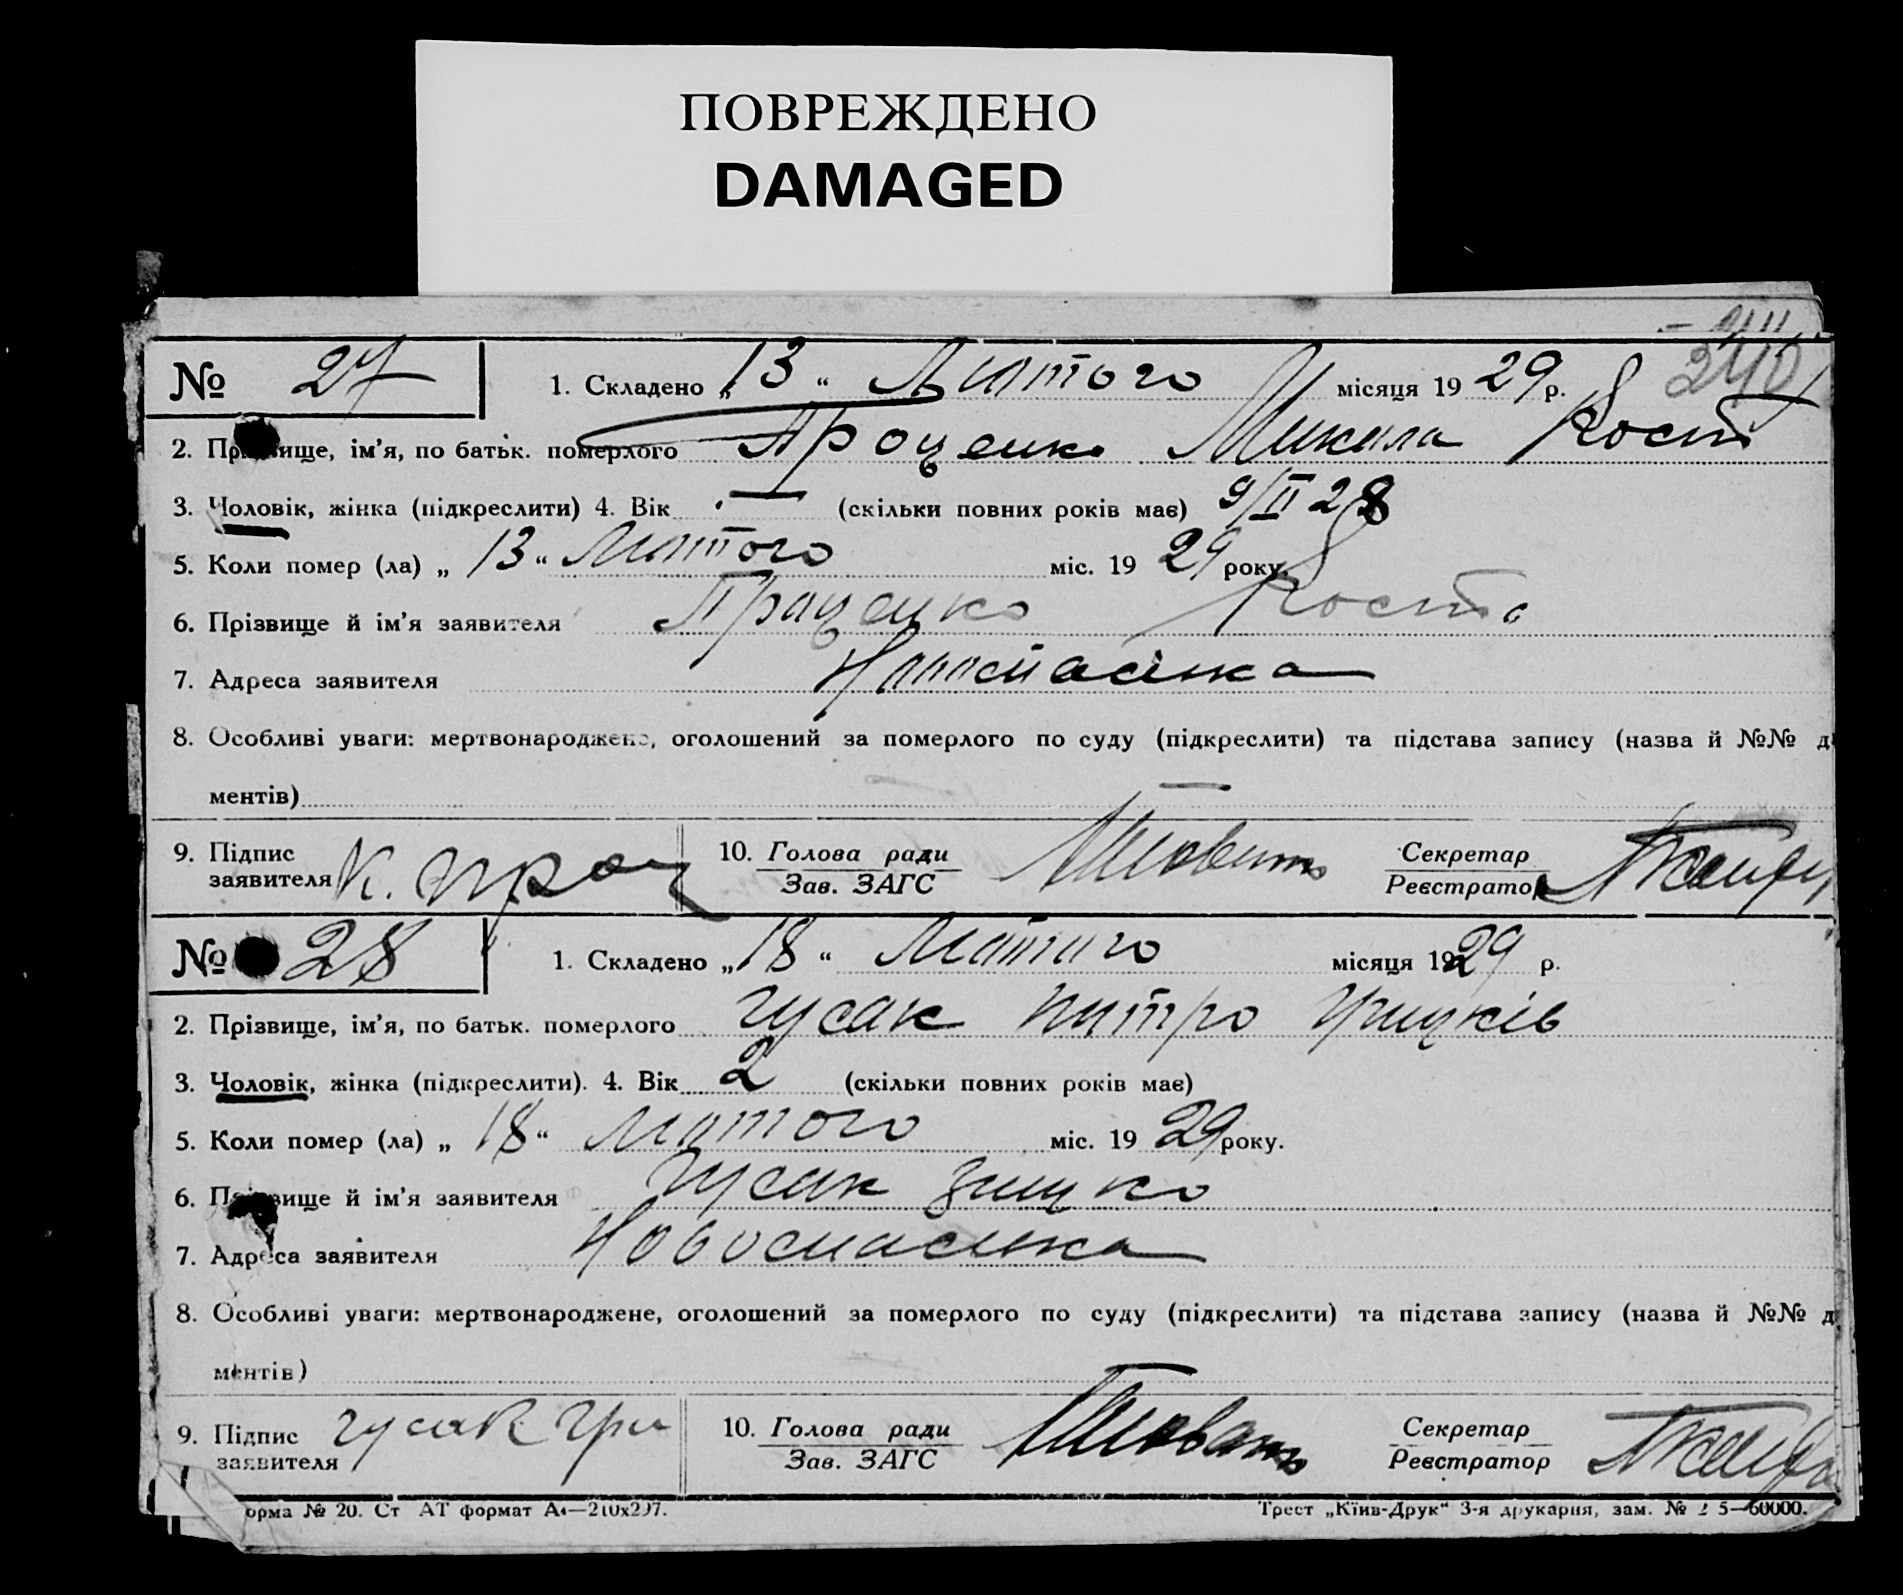 ПОВРЕЖДЕНО
DAMAGED
240
№ 27 1. Складено „13“ Лютого місяця 1929 р.
2. Прізвище, ім’я, по батьк. померлого Проценко Микола Кост
3. Чоловік, жінка (підкреслити) 4. Вік (скільки повних років має) 9/II 28
5. Коли помер (ла) „13“ Лютого міс. 1929 року.
6. Прізвище й ім’я заявителя Проценко Кость
7. Адреса заявителя Новоспасівка
8. Особливі уваги: мертвонароджене, оголошений за померлого по суду (підкреслити) та підстава запису (назва й №№ д
ментів)
9. Підпис заявителя К. Проц 10. Голова ради Секретар
Зав. ЗАГС Реєстратор
№ 28 1. Складено „18“ Лютого місяця 1929 р.
2. Прізвище, ім’я, по батьк. померлого Гусак Грицків
3. Чоловік, жінка (підкреслити). 4. Вік 2 (скільки повних років має)
5. Коли помер (ла) „18“ Лютого міс. 1929 року.
6. Прізвище й ім’я заявителя Гусак
7. Адреса заявителя Новоспасівка
8. Особливі уваги: мертвонароджене, оголошений за померлого по суду (підкреслити) та підстава запису (назва й №№ д
ментів)
9. Підпис заявителя Гусак Гри 10. Голова ради Секретар
Зав. ЗАГС Реєстратор
орма № 20. Ст АТ формат А4—210х297. Трест „Київ-Друк“ 3-я друкарня, зам. № 5—60000.